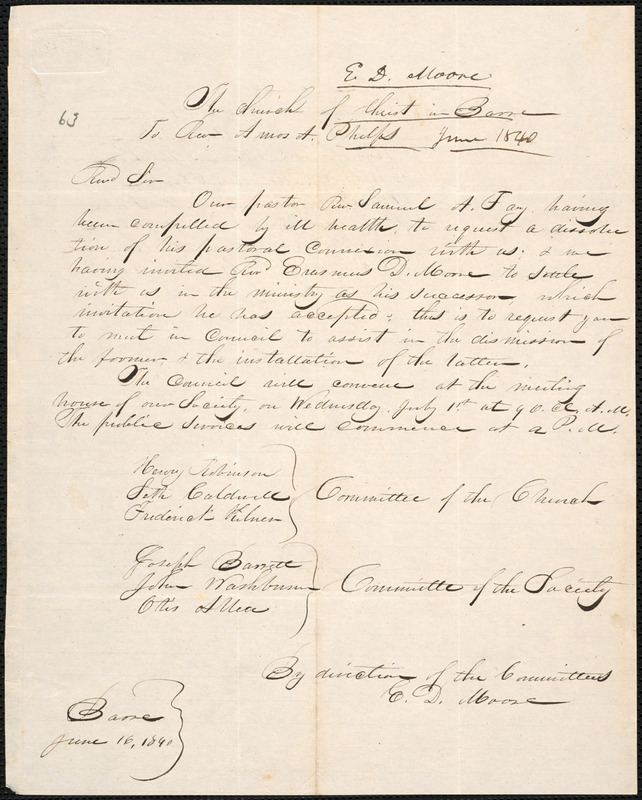 E. D. Moore
63
The Church of Christ in Barre
To Rev Amos A. Phelps June 1840
Revd Sir
Our pastor Rev. Samuel A. Fay, having
been compelled by ill health, to request a dissolu
tion of his pastoral connexion with us; & we
having invited Revd Erasmus D. Moore to settle
with us in the ministry as his successor, which
invitation he has accepted; this is to request you
to meet in Council to assist in the dismission of
the former & the installation of the latter.
The Council will convene at the meeting
house of our Society, on Wednesday July 1st at 9 o. cl. A.M.
The public services will commence at 2 P.M.
Henry Robinson
Seth Caldwell
Frederick
Committee of the Church
Joseph Barrett
John Washburn
Otis
Committee of the Society
By direction of the Committees
E. D. Moore
Barre
June 16, 1840